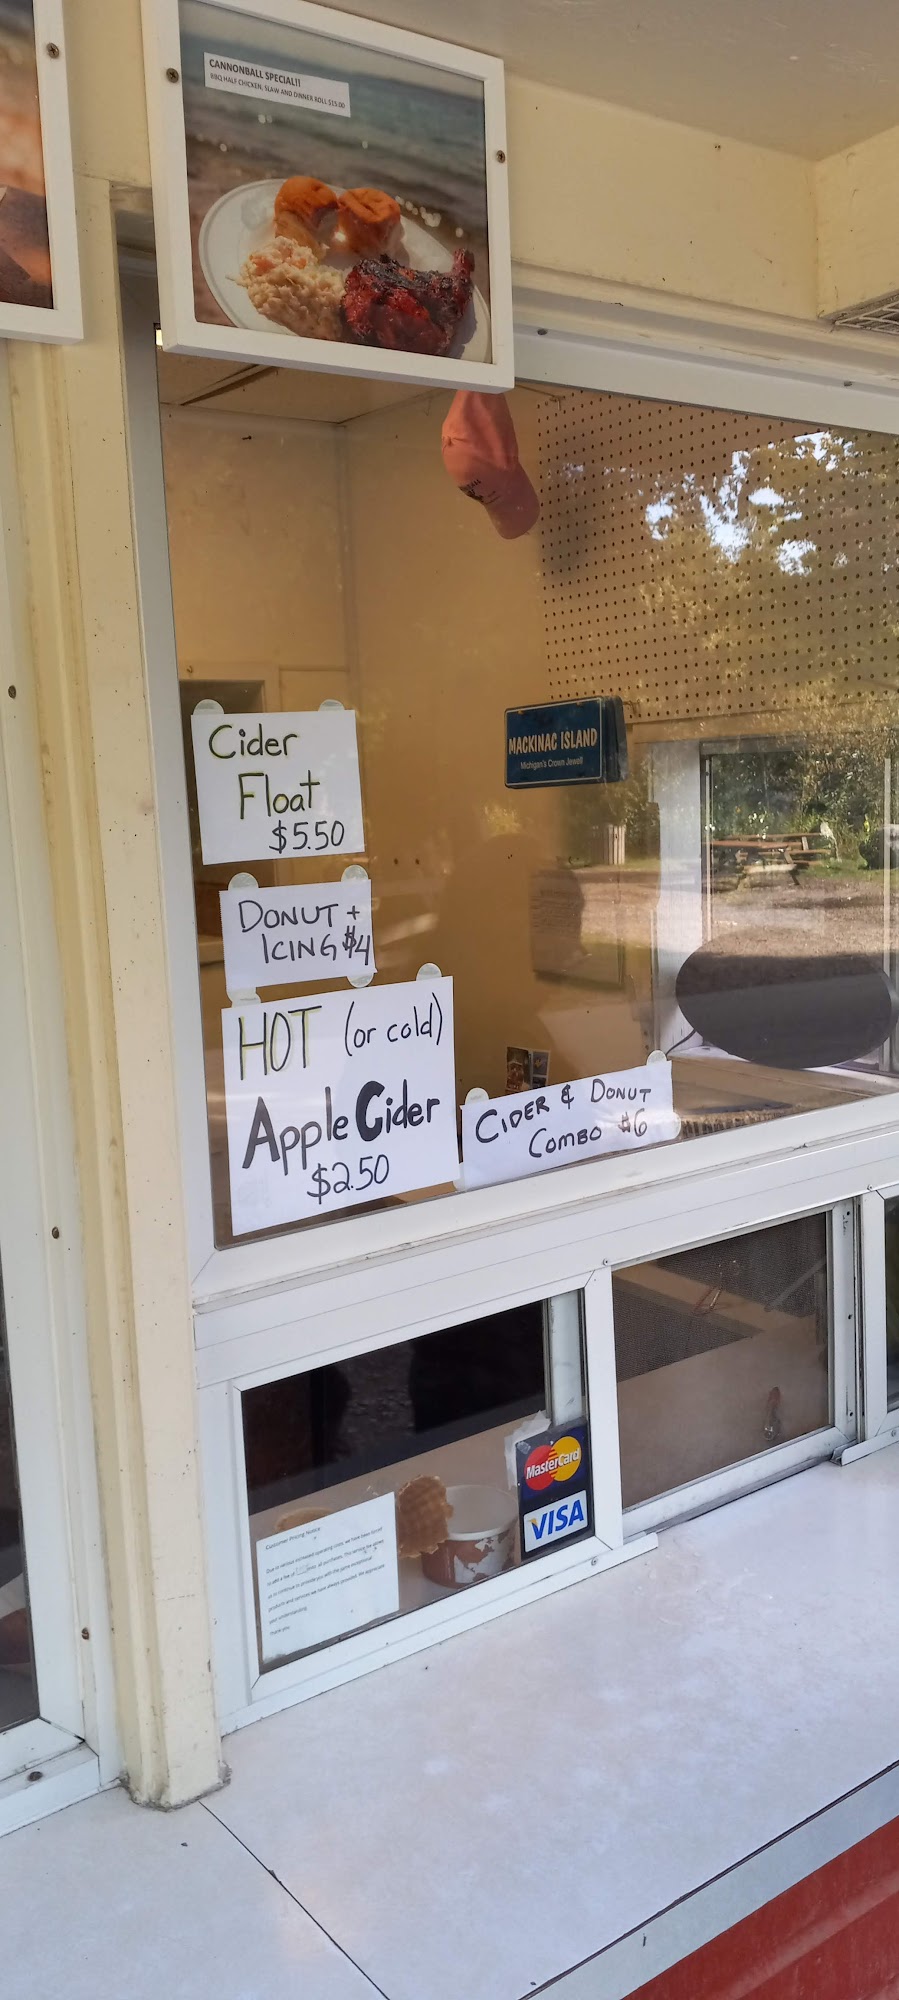 CANNONBALL SPECIAL!!
BBQ HALF CHICKEN, SLAW AND DINNER ROLL $15.00
MACKINAC ISLAND
Michigan's Crown Jewel
Cider
Float
$5.50
DONUT +
ICING $4
HOT (or cold)
Apple Cider
$2.50
CIDER & DONUT
COMBO $6
MasterCard
VISA
Customer Pricing Notice
Due to various increased operating costs, we have been forced
to add a fee of all purchases. This service fee allows
us to continue to provide you with the same exceptional
products and services we have always provided. We appreciate
your understanding.
Thank you.